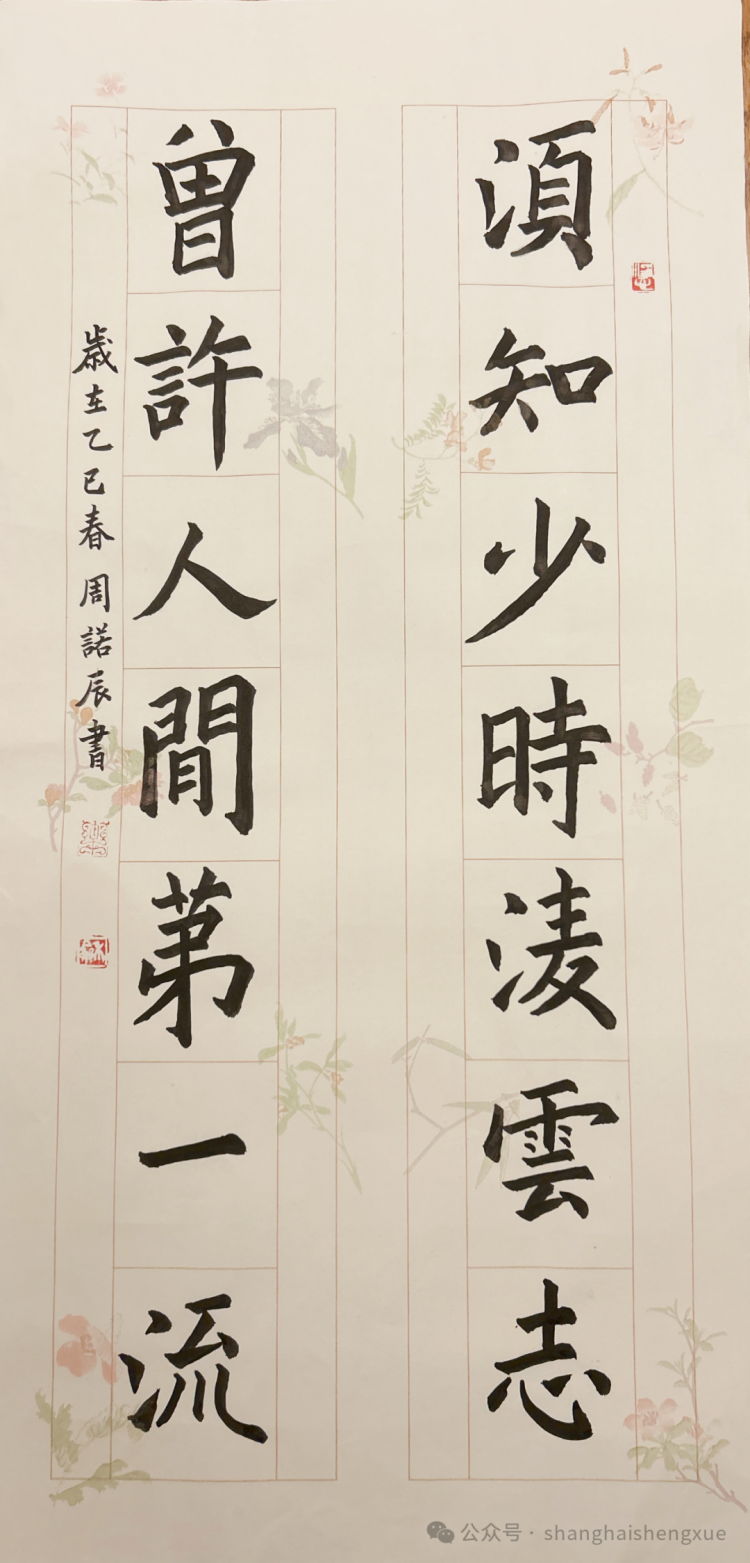 湏知少時淩雲志
曾許人間苐一流
歲在乙巳春 周諾辰書
公众号 · shanghaishengxue